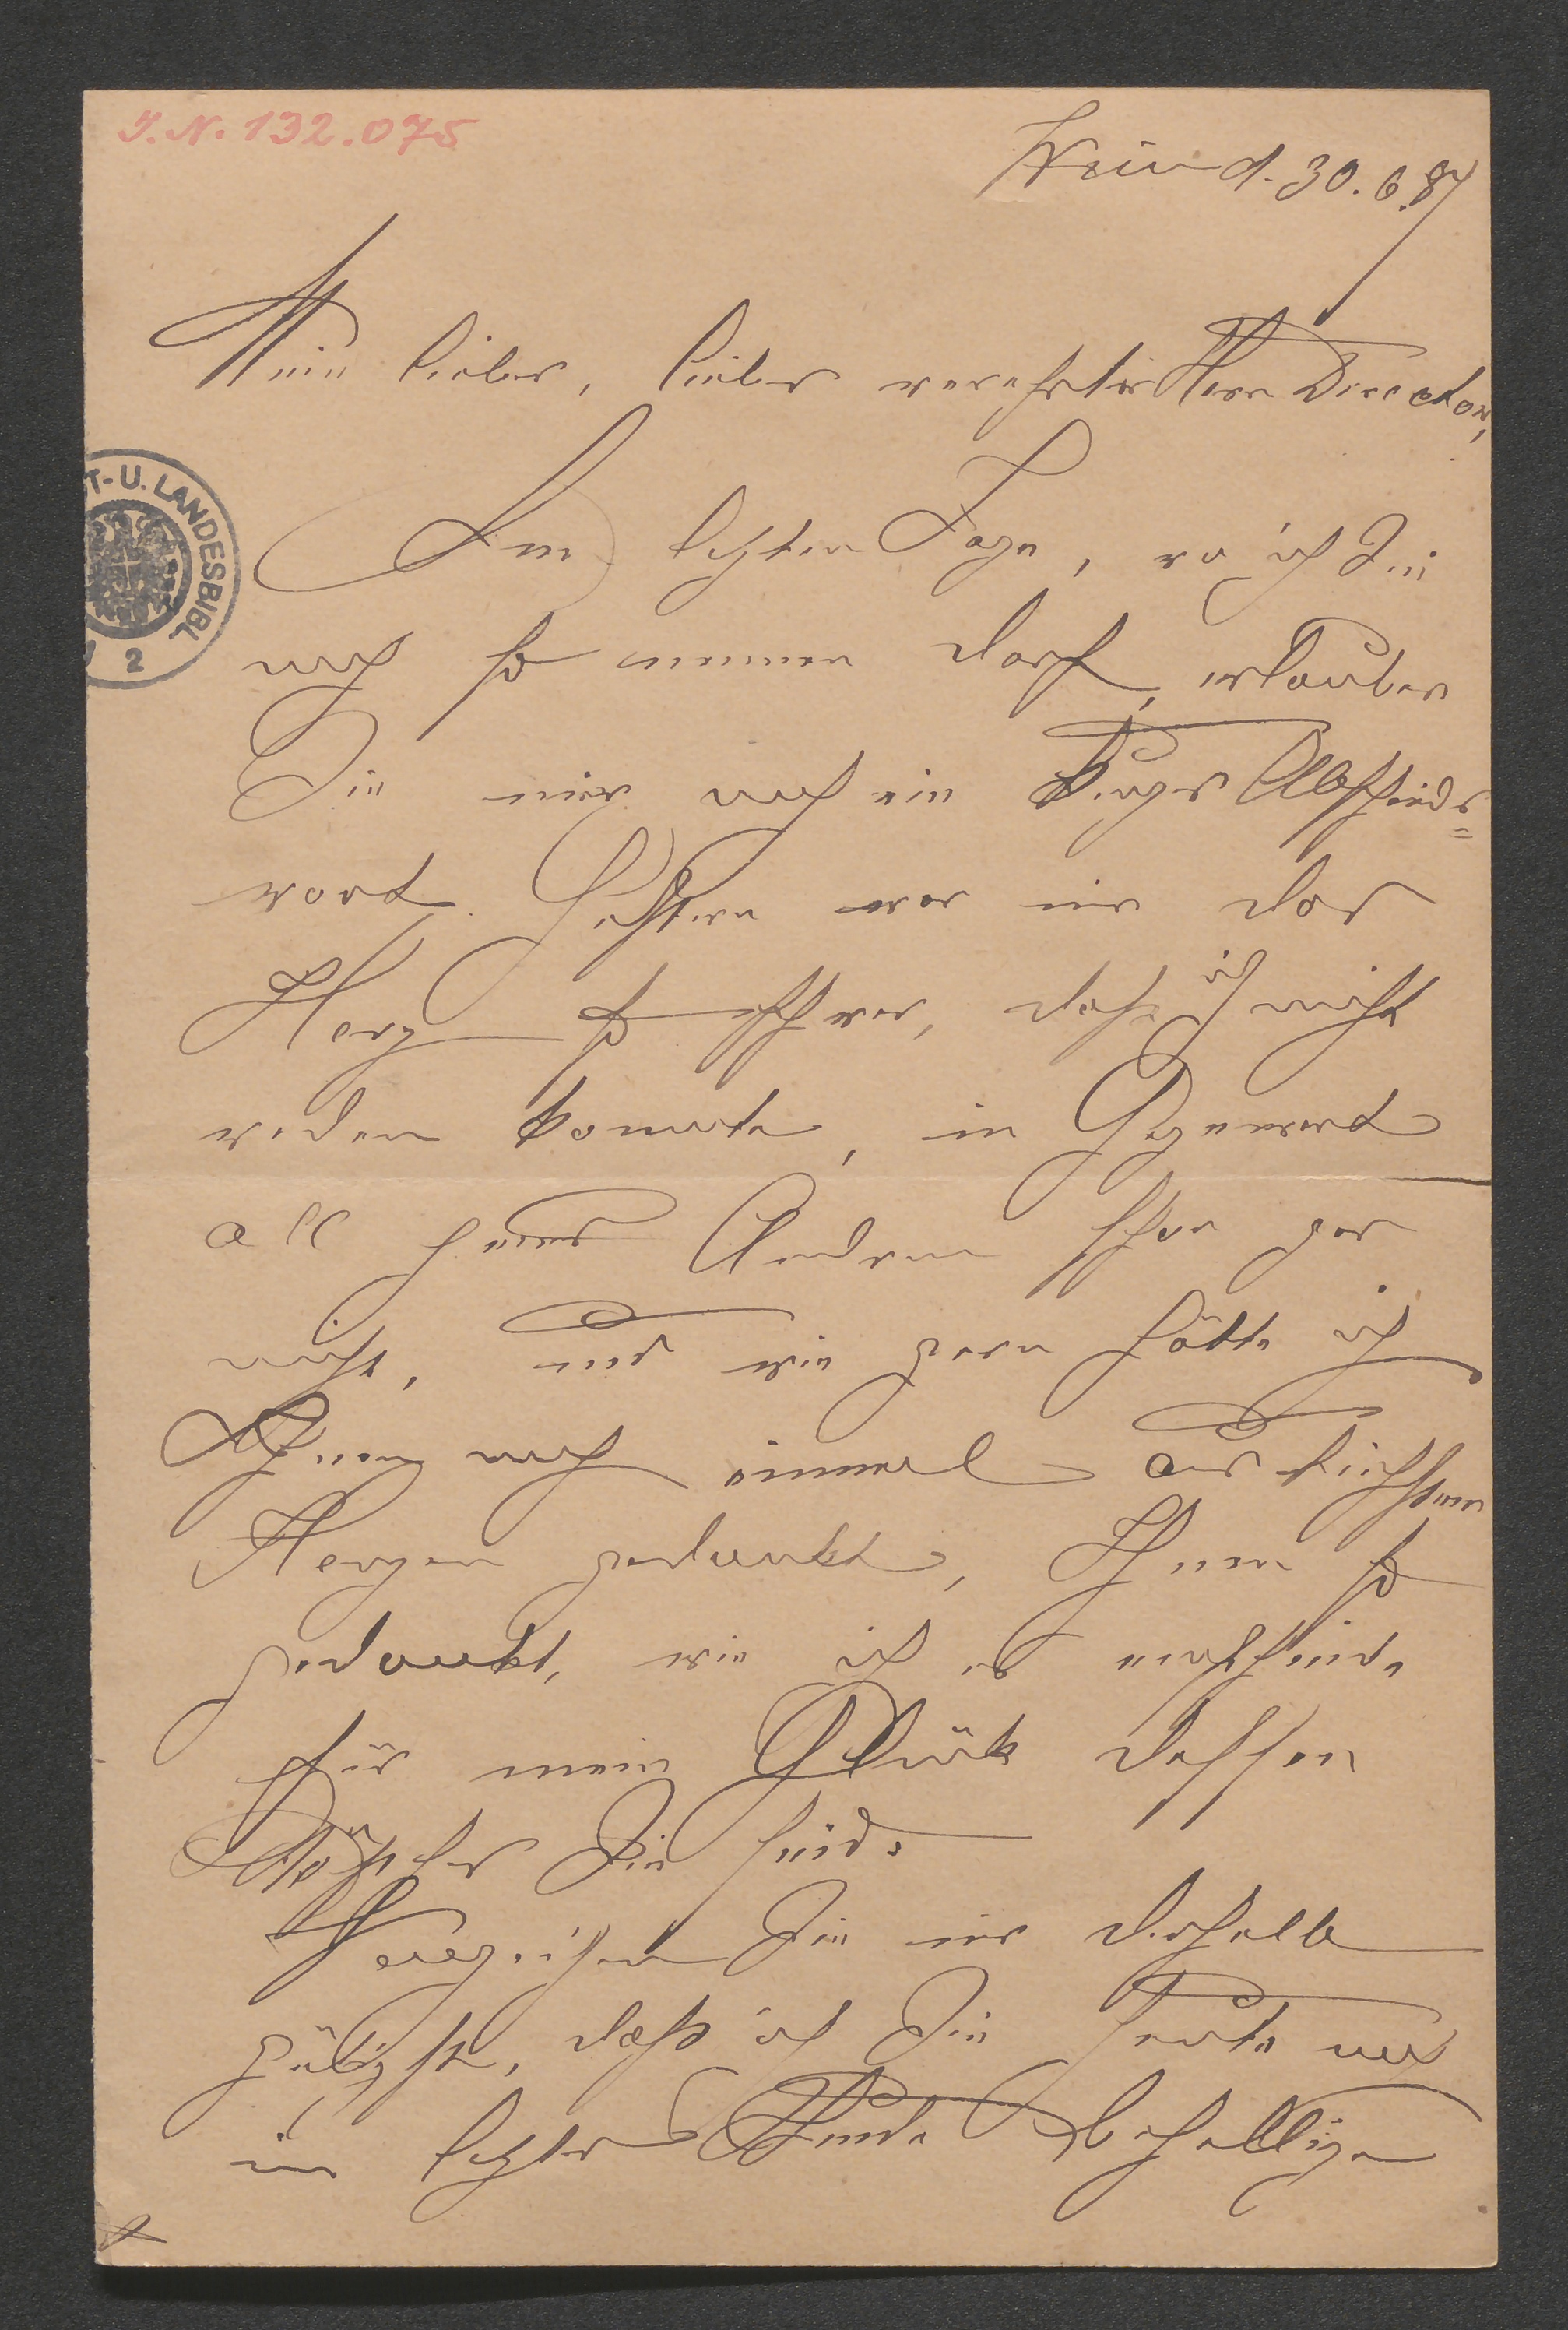 I.N. 132.075
Wien d. 30.6.87
Mein lieber, lieber verehrter Herr Director,
Am letzten Tage, wo ich Sie
noch so nennen darf, erlauben
Sie mir noch ein kurzes Abschieds=
wort. Gestern war mir das
Herz so schwer, daß ich nicht
reden konnte, in Gegenwart
all jener Andern schon gar
nicht, und wie gern hätte ich
Ihnen noch einmal aus tiefstem
Herzen gedankt, Ihnen so
gedankt, wie ich es empfinde
für mein Glück dessen
Schöpfer Sie sind.
Verzeihen Sie mir deshalb
gütigst, daß ich Sie heute noch
in letzter Stunde behellige
T- U. LANDESBIBL
2